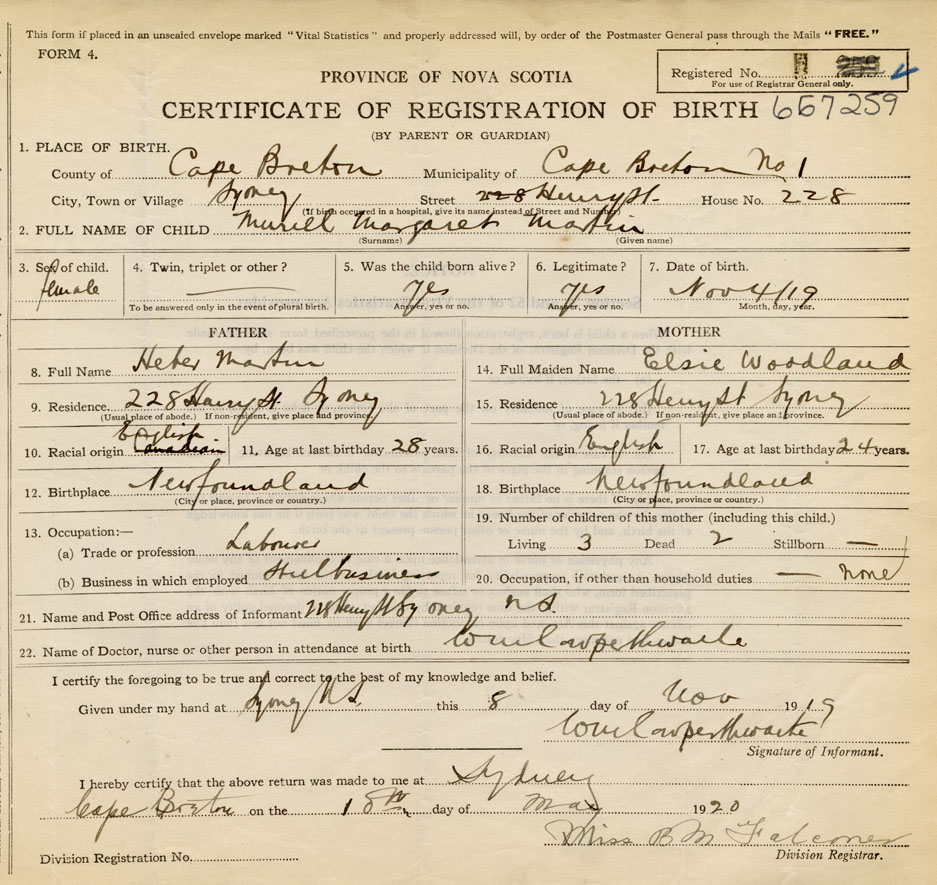 This form if placed in an unsealed envelope marked "Vital Statistics" and properly addressed will, by order of the Postmaster General pass through the Mails "FREE."
FORM 4.
PROVINCE OF NOVA SCOTIA
Registered No.
For use of Registrar General only.
CERTIFICATE OF REGISTRATION OF BIRTH 667259
(BY PARENT OR GUARDIAN)
1. PLACE OF BIRTH.
County of Cape Breton Municipality of Cape Breton No 1
City, Town or Village Sydney Street 228 Henry St. House No. 228
(If birth occurred in a hospital, give its name instead of Street and Number)
2. FULL NAME OF CHILD Muriel Margaret Martin
(Surname) (Given name)
3. Sex of child. 4. Twin, triplet or other? 5. Was the child born alive? 6. Legitimate? 7. Date of birth.
female — yes yes Nov 4/19
To be answered only in the event of plural birth. Answer, yes or no. Answer, yes or no. Month, day, year.
FATHER MOTHER
8. Full Name Heber Martin 14. Full Maiden Name Elsie Woodland
9. Residence 228 Henry St. Sydney 15. Residence 228 Henry St Sydney
(Usual place of abode.) If non-resident, give place and province. (Usual place of abode.) If non-resident, give place and province.
English
10. Racial origin Canadian 11. Age at last birthday 28 years. 16. Racial origin English 17. Age at last birthday 24 years.
12. Birthplace Newfoundland 18. Birthplace Newfoundland
(City or place, province or country.) (City or place, province or country.)
13. Occupation:— 19. Number of children of this mother (including this child.)
(a) Trade or profession Labourer Living 3 Dead 2 Stillborn —
(b) Business in which employed Steel business 20. Occupation, if other than household duties — none
21. Name and Post Office address of Informant 228 Henry St Sydney N.S.
22. Name of Doctor, nurse or other person in attendance at birth Cowperthwaite
I certify the foregoing to be true and correct to the best of my knowledge and belief.
Given under my hand at Sydney N.S. this 8 day of Nov 1919
Cowperthwaite
Signature of Informant.
I hereby certify that the above return was made to me at Sydney
Cape Breton on the 18th day of May 1920
Miss B M Falconer
Division Registration No. Division Registrar.